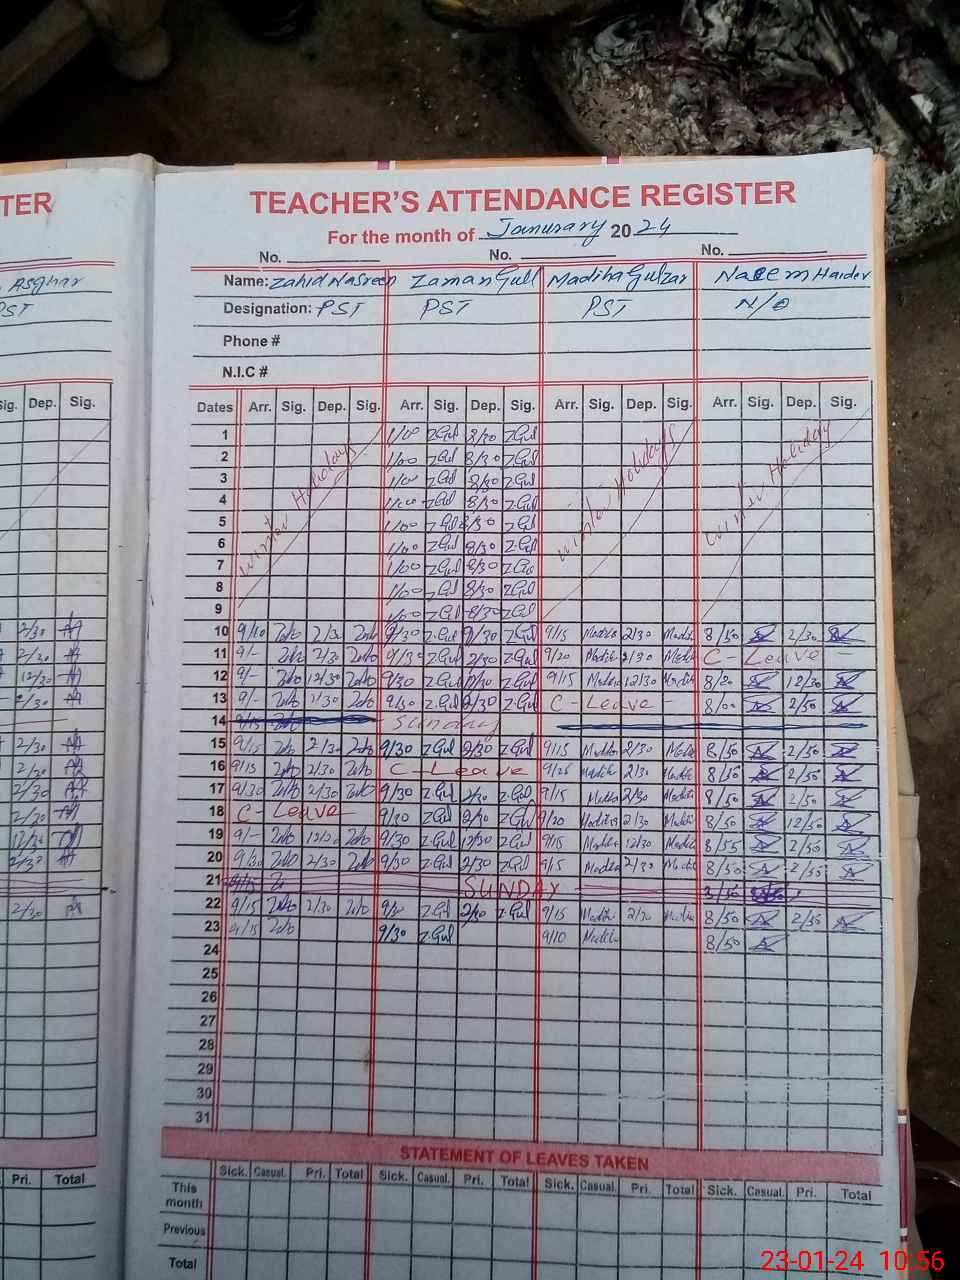 TER
TEACHER'S ATTENDANCE REGISTER
For the month of Janurary 20 24
No. No. No.
Asghar Name: Zahid Nasreen Zaman Gull Madiha Gulzar Naeem Haider
PST Designation: PST PST PST N/Q
Phone #
N.I.C #
Sig. Dep. Sig. Dates Arr. Sig. Dep. Sig. Arr. Sig. Dep. Sig. Arr. Sig. Dep. Sig. Arr. Sig. Dep. Sig.
Winter Holidays Winter Holidays Winter Holiday
1 1/00 Z.Gul 8/30 Z.Gul
2 1/00 Z.Gul 8/30 Z.Gul
3 1/00 Z.Gul 8/30 Z.Gul
4 1/00 Z.Gul 8/30 Z.Gul
5 1/00 Z.Gul 8/30 Z.Gul
6 1/00 Z.Gul 8/30 Z.Gul
7 1/00 Z.Gul 8/30 Z.Gul
8 1/00 Z.Gul 8/30 Z.Gul
9 1/00 Z.Gul 8/30 Z.Gul
2/30 10 9/10 2/30 9/30 Z.Gul Z.Gul 9/15 Madiha 2/30 Madiha 8/50 2/30
11 9/- 2/30 9/30 Z.Gul 2/30 Z.Gul 9/20 Madiha 2/30 Madiha C - Leave -
12/30 12 9/- 12/30 9/30 Z.Gul Z.Gul 9/15 Madiha 12/30 Madiha 8/20 12/30
2/30 13 9/- 2/30 9/30 Z.Gul 2/30 Z.Gul C - Leave - 8/00 2/50
14 9/15 Sunday
2/30 15 9/15 2/30 9/30 Z.Gul 2/30 Z.Gul 9/15 Madiha 2/30 Madiha 8/50 2/50
2/30 16 9/15 2/30 C - Leave 2/30 Madiha 2/50
2/30 17 9/30 2/30 9/30 Z.Gul 2/30 Z.Gul 9/15 Madiha 2/30 Madiha 8/50 2/50
2/30 18 C - Leave 9/30 Z.Gul 2/30 Z.Gul 9/20 Madiha 2/30 Madiha 8/50 12/50
19 9/- 9/30 Z.Gul 12/30 Z.Gul 9/15 Madiha 12/30 Madiha 8/55 2/50
20 9/30 2/30 9/30 Z.Gul 2/30 Z.Gul 9/5 Madiha 2/30 Madiha 8/50 2/50
21 SUNDAY
2/30 22 9/15 2/30 Z.Gul 2/30 Z.Gul 9/15 Madiha 2/30 Madiha 8/50 2/50
23 9/15 9/30 Z.Gul 9/10 Madiha 8/50
24
25
26
27
28
29
30
31
STATEMENT OF LEAVES TAKEN
Pri. Total Sick. Casual. Pri. Total Sick. Casual. Pri. Total Sick. Casual. Pri. Total Sick. Casual. Pri. Total
This month
Previous
Total
23-01-24 10:56